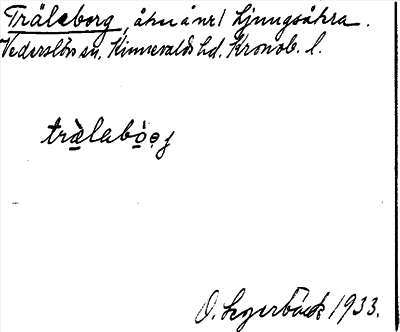 Träleborg, åker å nr 1 Ljungsåkra.
Vederslövs sn, Kinnevalds hd. Kronob. l.
trälabórj
O. Legerbäck 1933.